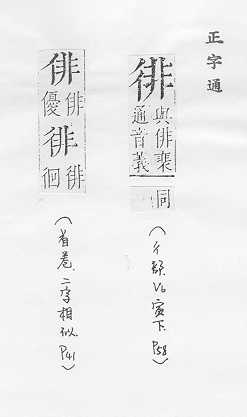 正字通
徘
與俳裴
通音義
同
(彳部 V6 寅下 P58)
俳
俳
優
徘
徘
徊
(首卷.二字相似.P41)